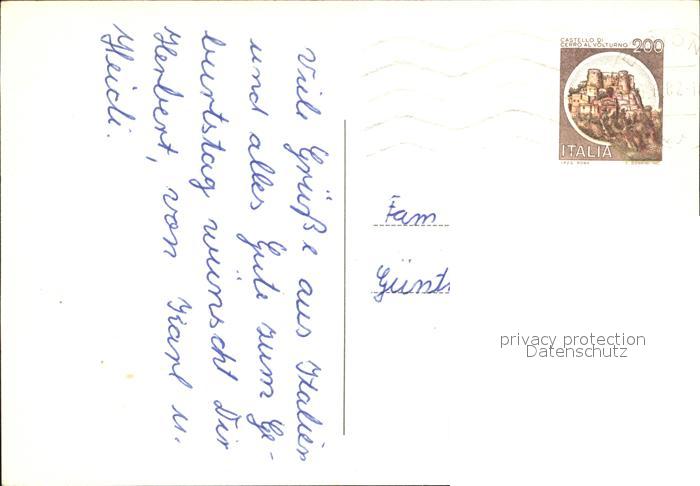 Viele Grüße aus Italien
und alles Gute zum Ge-
burtstag wünscht Dir
Herbert, von Karl u.
Heidi.
CASTELLO DI
CERRO AL VOLTURNO 200
ITALIA
Fam
Günt
privacy protection
Datenschutz